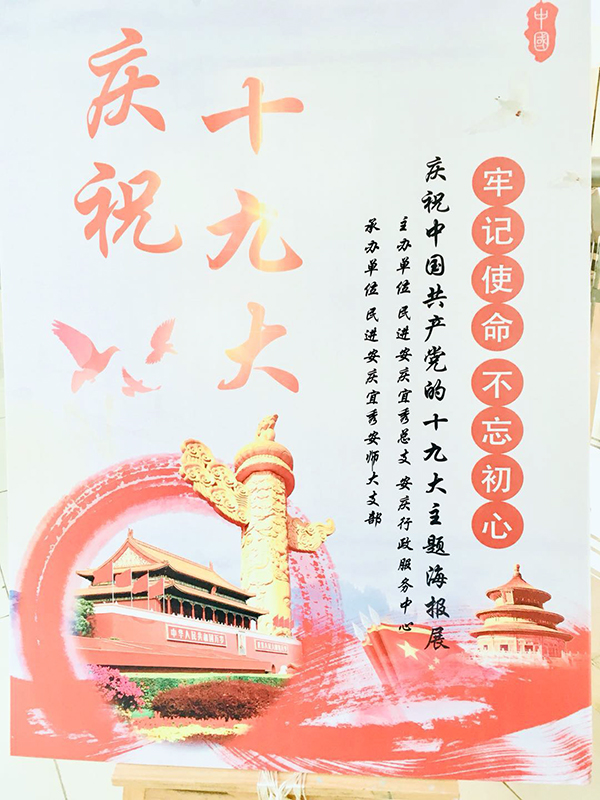 中國
庆祝
十九大
牢记使命 不忘初心
庆祝中国共产党的十九大主题海报展
主办单位 民进安庆宜秀总支 安庆行政服务中心
承办单位 民进安庆宜秀安师大支部
中华人民共和国万岁